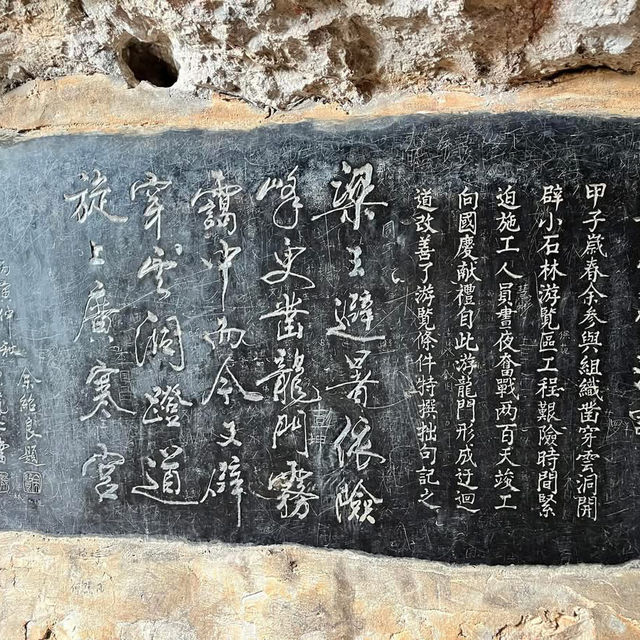 甲子歲春余參與組織凿穿雲洞開
辟小石林游覽區工程艱險時間緊
迫施工人員晝夜奮戰两百天竣工
向國慶献禮自此游龍門形成迂迴
道改善了游覽條件特撰拙句記之
梁王避暑依險
峰更凿龍門霧
靄中而今又辟
穿雲洞蹬道
旋上廣寒宮
余紹良題
丙寅仲秋